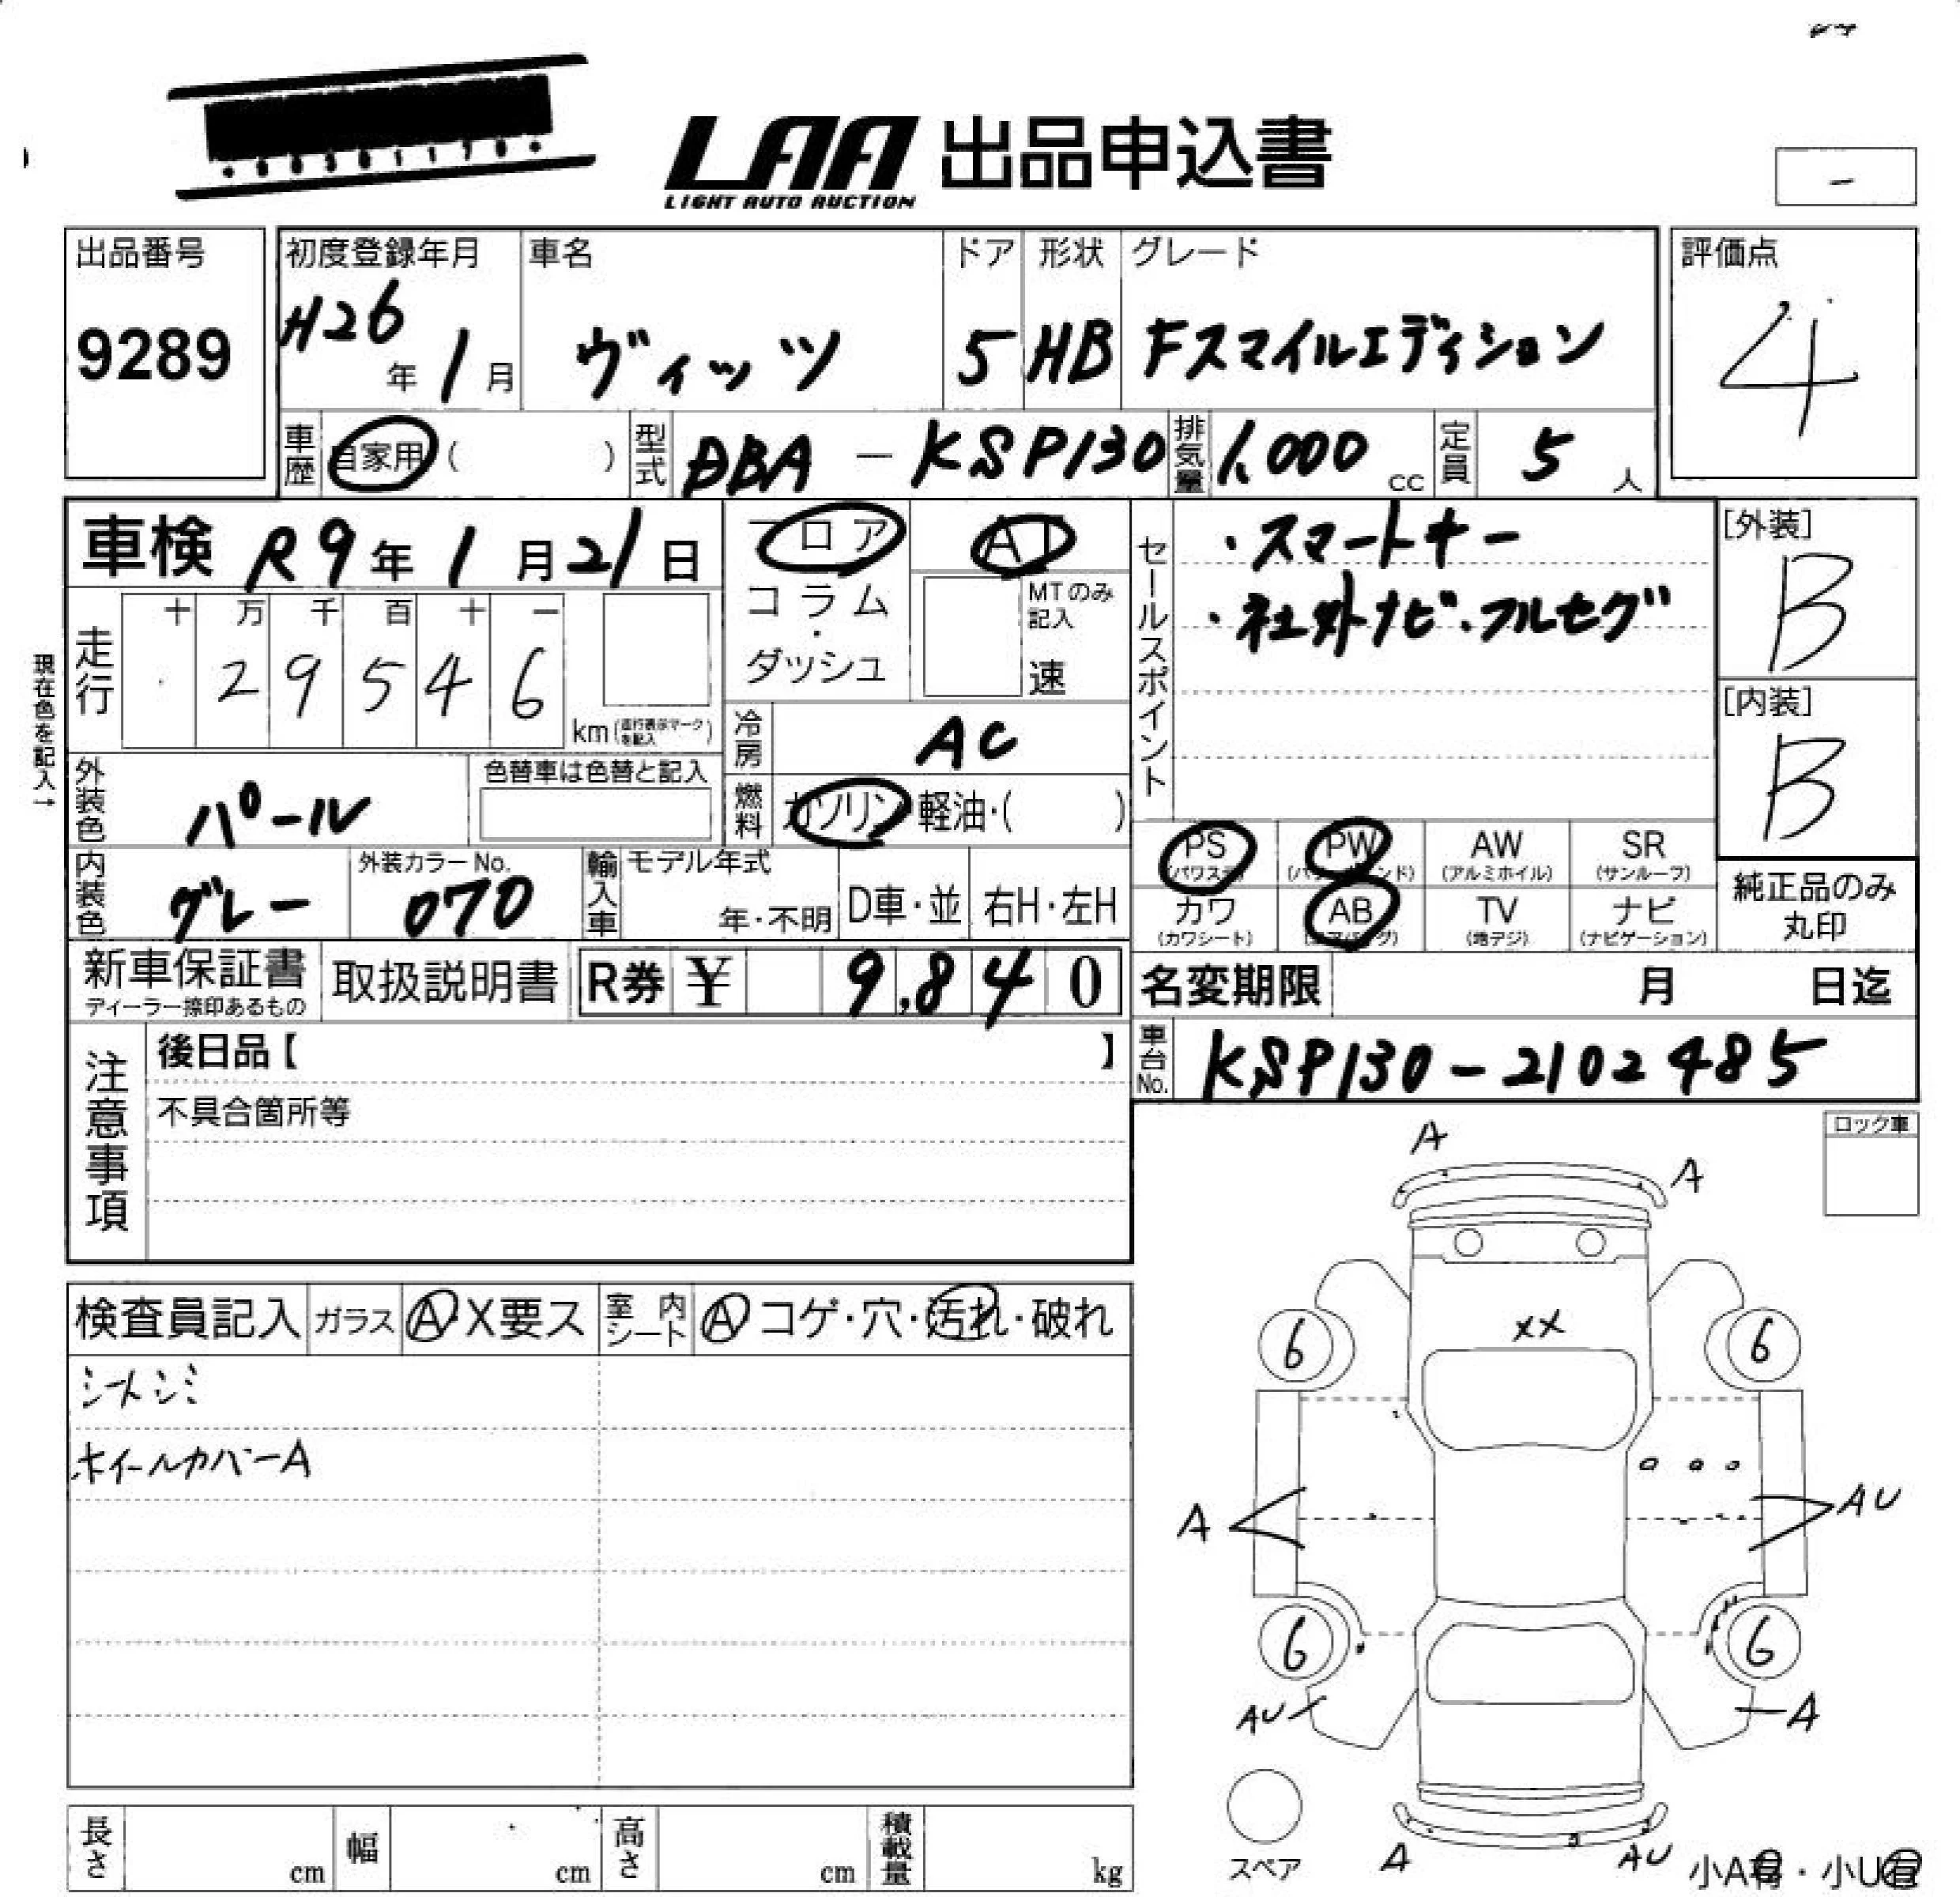 LAA 出品申込書
LIGHT AUTO AUCTION
-
出品番号
9289
初度登録年月
H26年 1月
車名
ヴィッツ
ドア
5
形状
HB
グレード
Fスマイルエディション
評価点
4
車歴 自家用 ( )
型式 DBA - KSP130
排気量 1,000 cc
定員 5 人
車検 R9年 1月21日
フロア
コラム・ダッシュ
AT
MTのみ記入
速
走行
十 万 千 百 十 一
2 9 5 4 6
km (走行表示マークを記入)
現在色を記入→
冷房 AC
燃料 ガソリン・軽油・( )
外装色 パール
色替車は色替と記入
内装色 グレー
外装カラーNo.
070
輸入車
モデル年式
年・不明
D車・並
右H・左H
新車保証書
ディーラー捺印あるもの
取扱説明書
R券 ¥ 9,840
セールスポイント
・スマートキー
・社外ナビ・フルセグ
[外装]
B
[内装]
B
PS
(パワステ)
PW
(パワーウインド)
AW
(アルミホイル)
SR
(サンルーフ)
カワ
(カワシート)
AB
(エアバッグ)
TV
(地デジ)
ナビ
(ナビゲーション)
純正品のみ
丸印
名変期限 月 日迄
車台No. KSP130-2102485
注意事項
後日品【 】
不具合箇所等
ロック車
検査員記入 ガラス A・X要ス 室内シート A コゲ・穴・汚れ・破れ
シートシミ
ホイールカバーA
A
A
XX
6
6
A
AU
6
6
AU
A
スペア
A
AU
小A有・小U有
長さ cm
幅 cm
高さ cm
積載量 kg